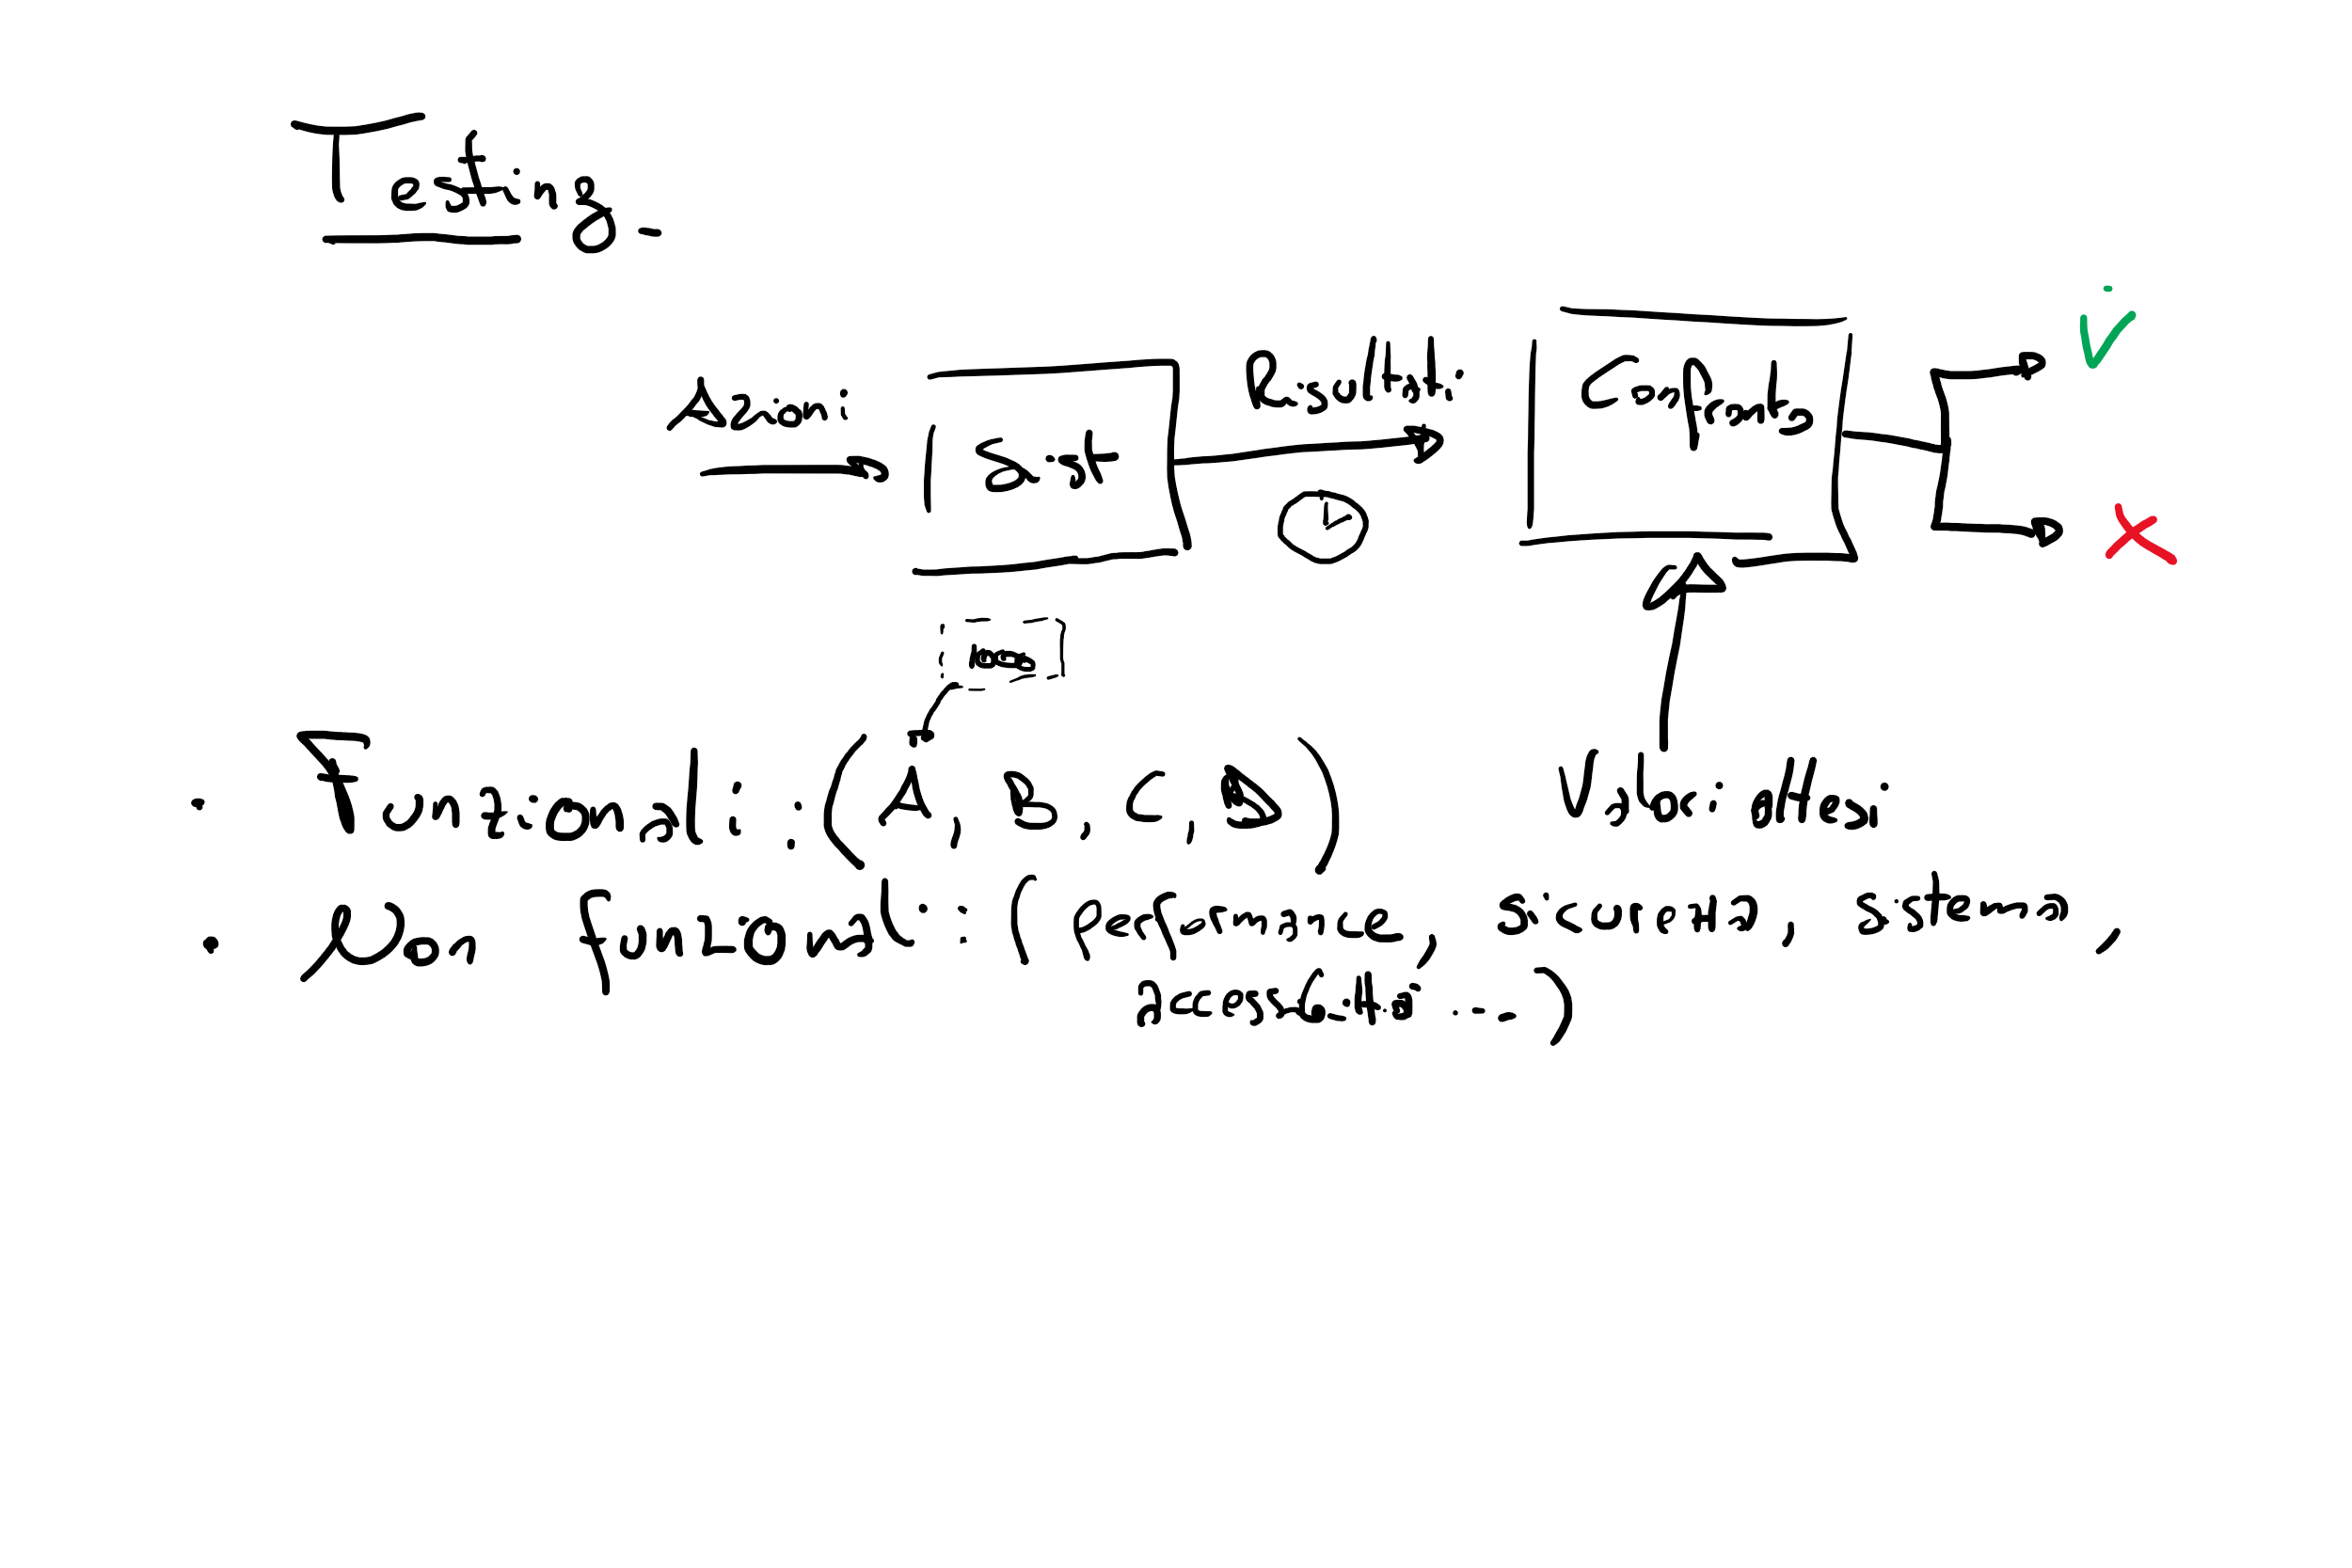 Testing_
Azioni
Sist
Risultati
Confronto
Valori attesi
• Funzionali: (A, B, C, D)
• Non funzionali: (performance, sicurezza, sistema,
accessibilità...)